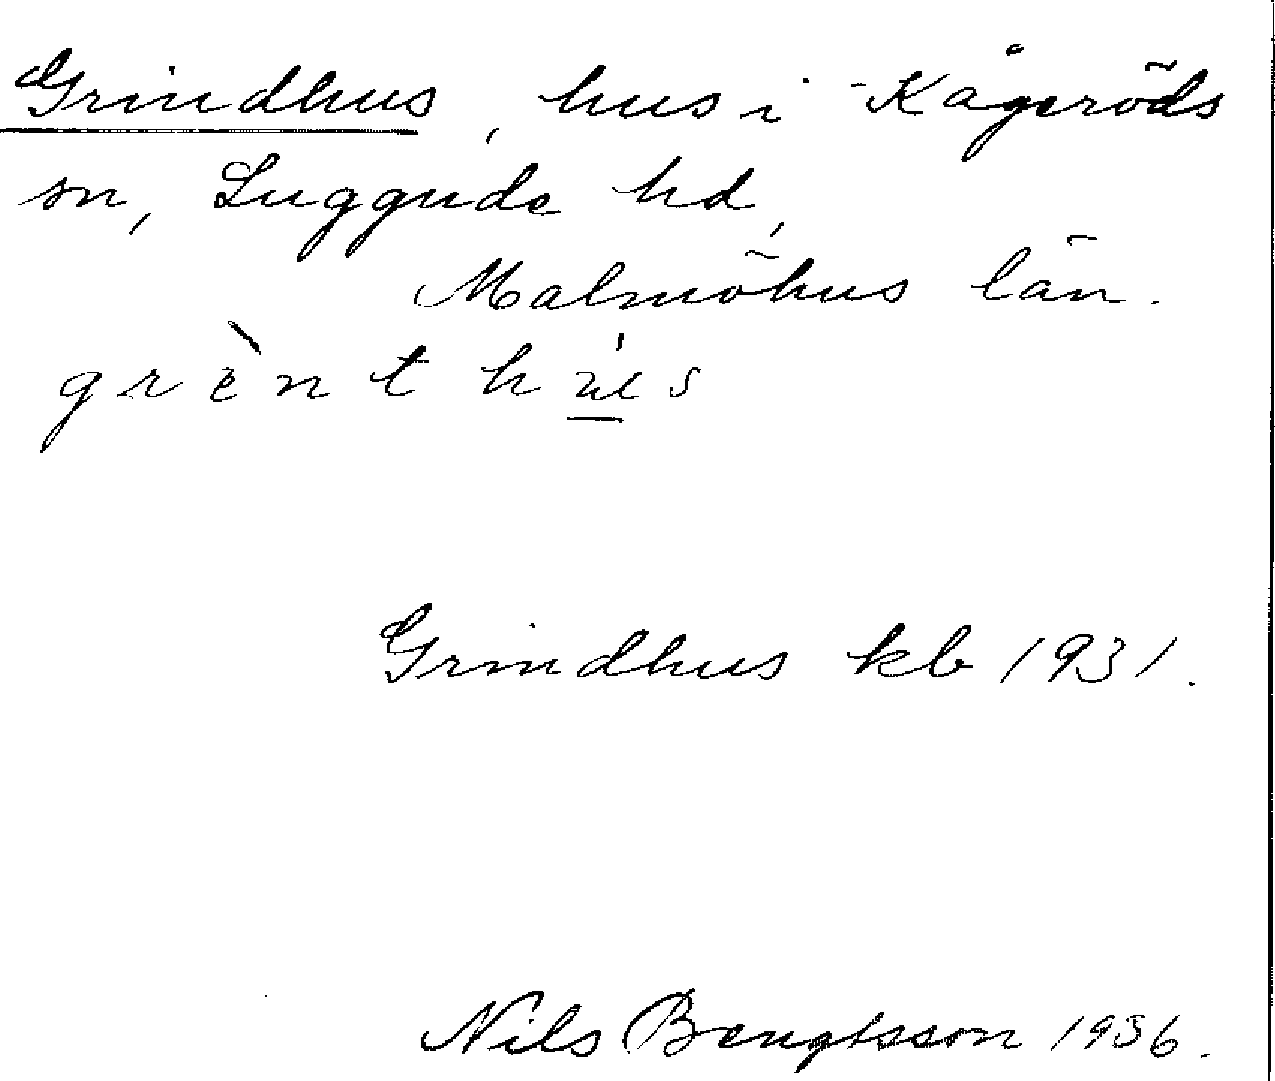 Grindhus, hus i Kågeröds
sn, Luggude hd,
Malmöhus län.
grènthús
Grindhus kb 1931.
Nils Bengtsson 1936.